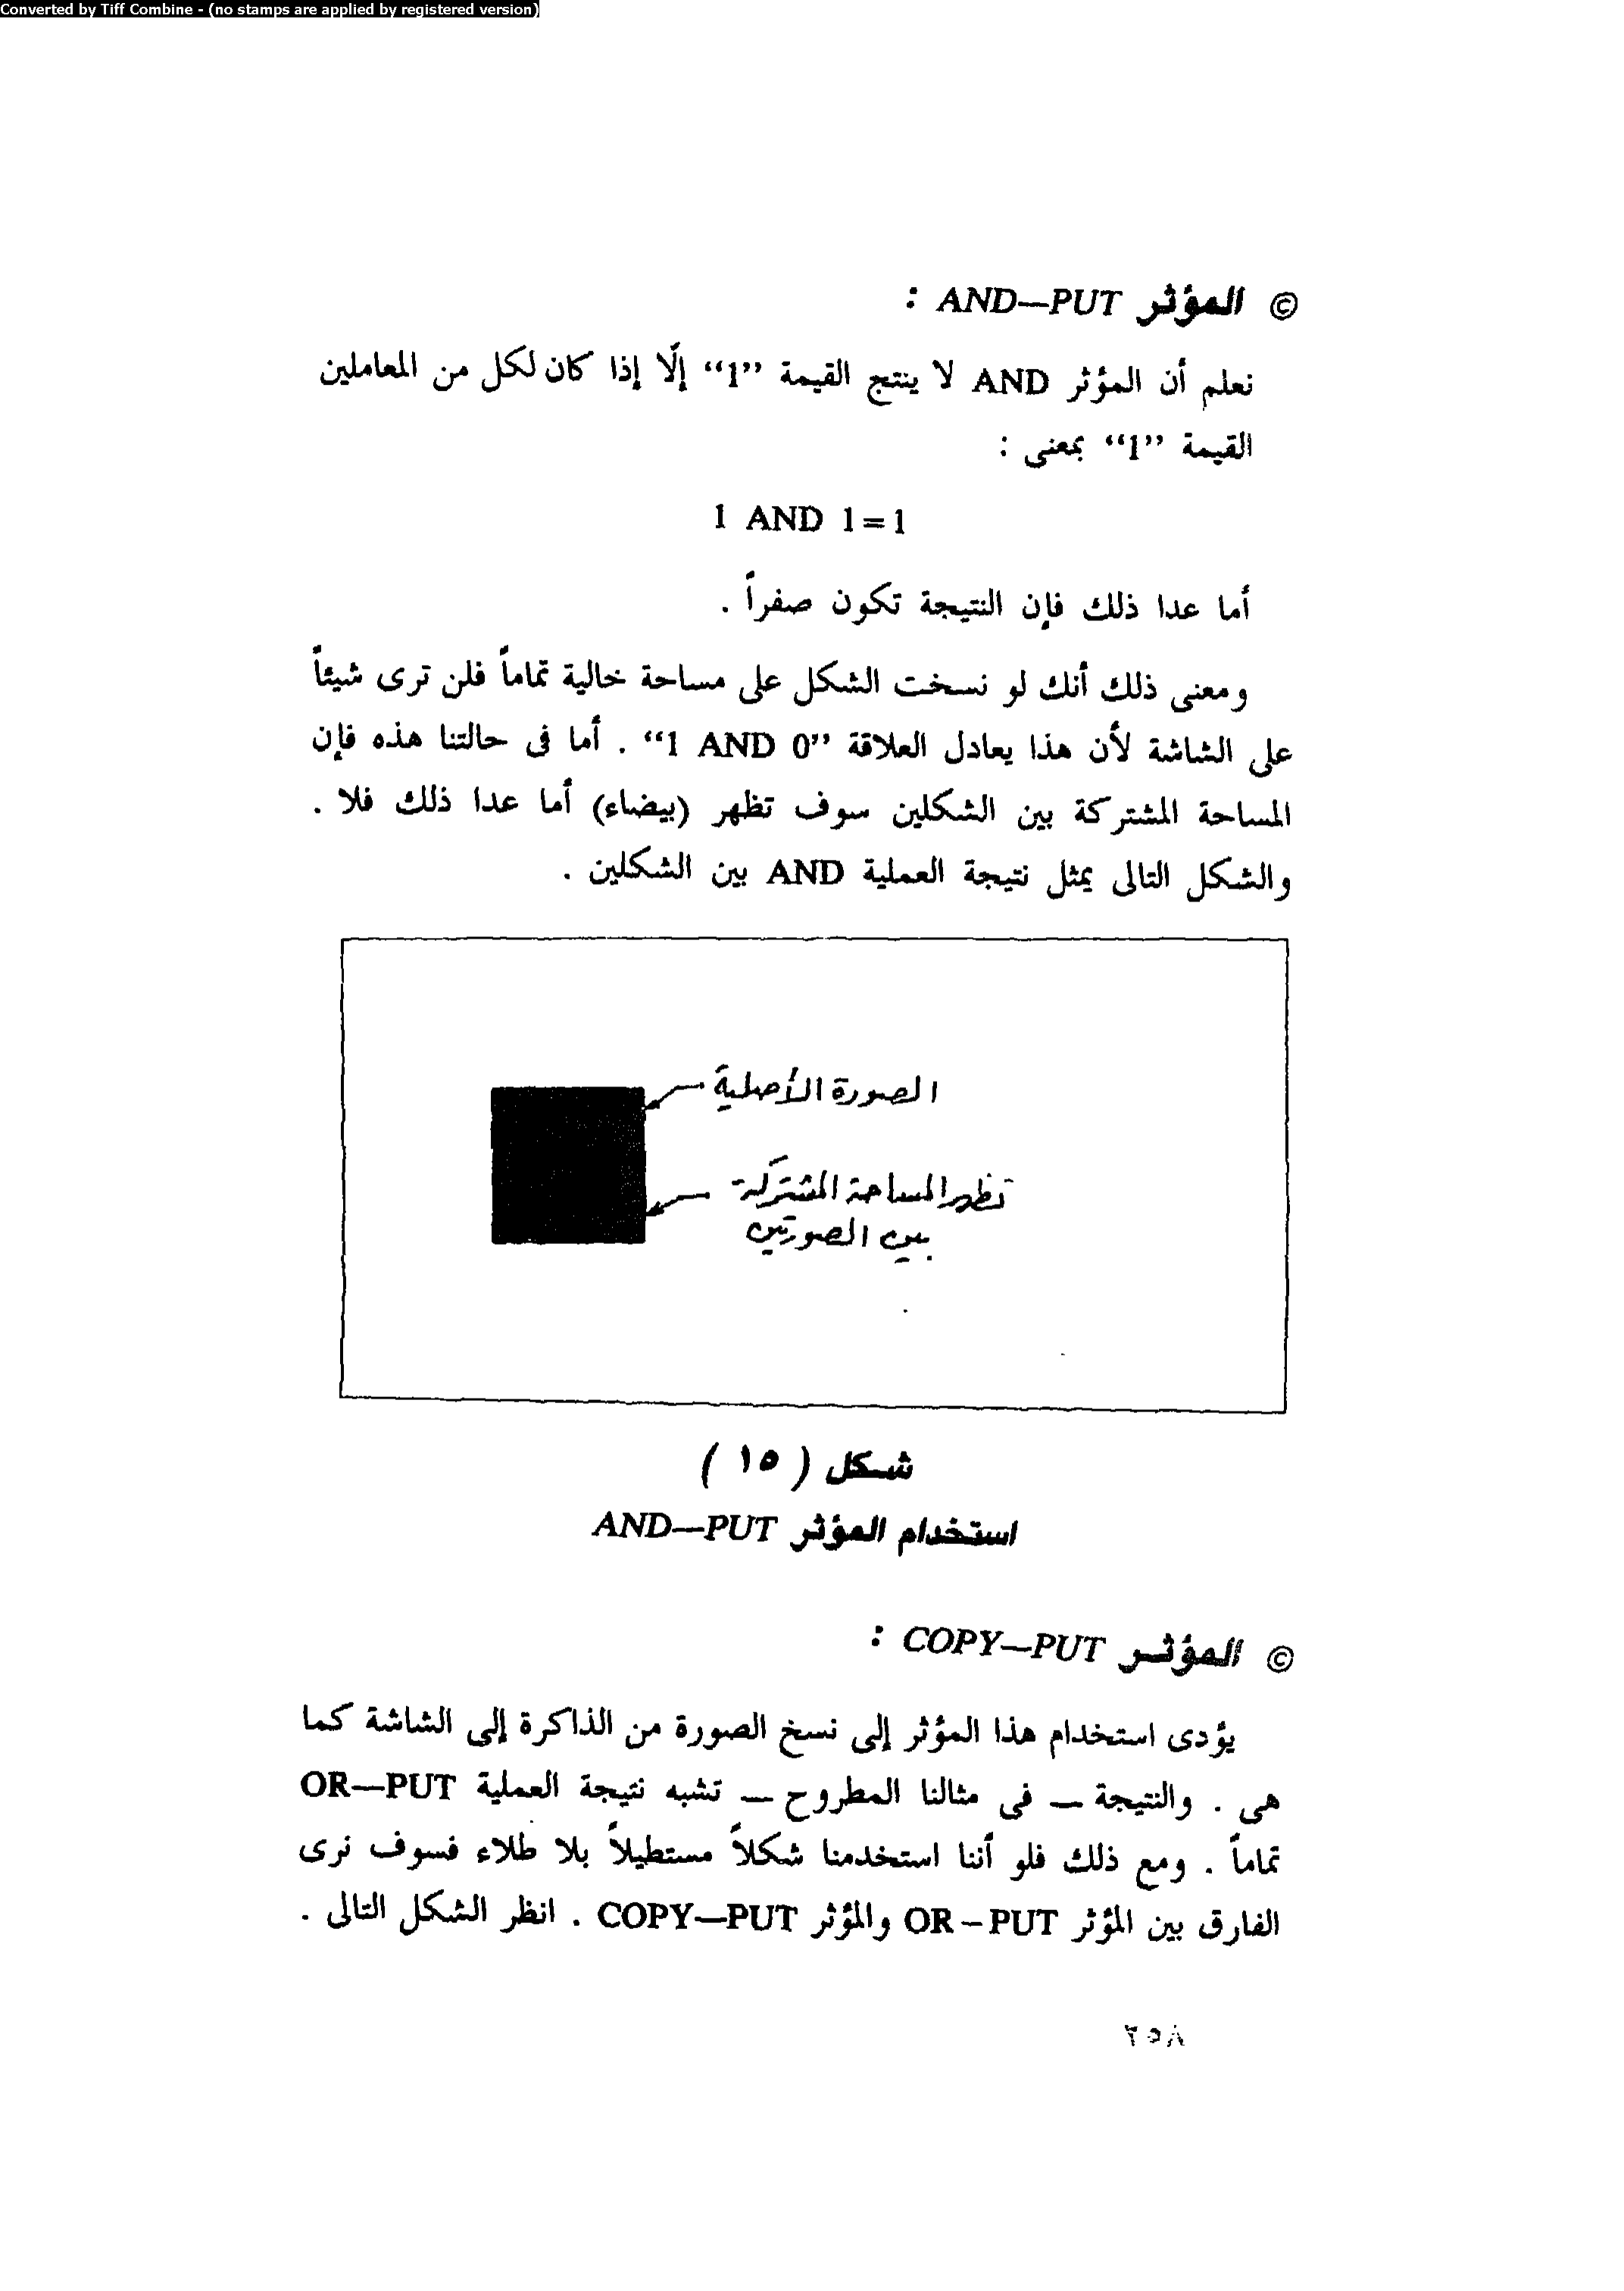 Converted by Tiff Combine - (no stamps are applied by registered version)
© المؤثر AND—PUT :
نعلم أن المؤثر AND لا ينتج القيمة “1” إلّا إذا كان لكل من المعاملين
القيمة “1” بمعنى :
1 AND 1=1
أما عدا ذلك فإن النتيجة تكون صفراً .
ومعنى ذلك أنك لو نسخت الشكل على مساحة خالية تماماً فلن ترى شيئاً
على الشاشة لأن هذا يعادل العلاقة “1 AND 0” . أما فى حالتنا هذه فإن
المساحة المشتركة بين الشكلين سوف تظهر (بيضاء) أما عدا ذلك فلا .
والشكل التالى يمثل نتيجة العملية AND بين الشكلين .
الصورة الأصلية
تظهر المساحة المشتركة
بين الصورتين
شكل ( ١٥ )
استخدام المؤثر AND—PUT
© المؤثر COPY—PUT :
يؤدى استخدام هذا المؤثر إلى نسخ الصورة من الذاكرة إلى الشاشة كما
هى . والنتيجة — فى مثالنا المطروح — تشبه نتيجة العملية OR—PUT
تماماً . ومع ذلك فلو أننا استخدمنا شكلاً مستطيلاً بلا طلاء فسوف نرى
الفارق بين المؤثر OR–PUT والمؤثر COPY—PUT . انظر الشكل التالى .
٢٥٨